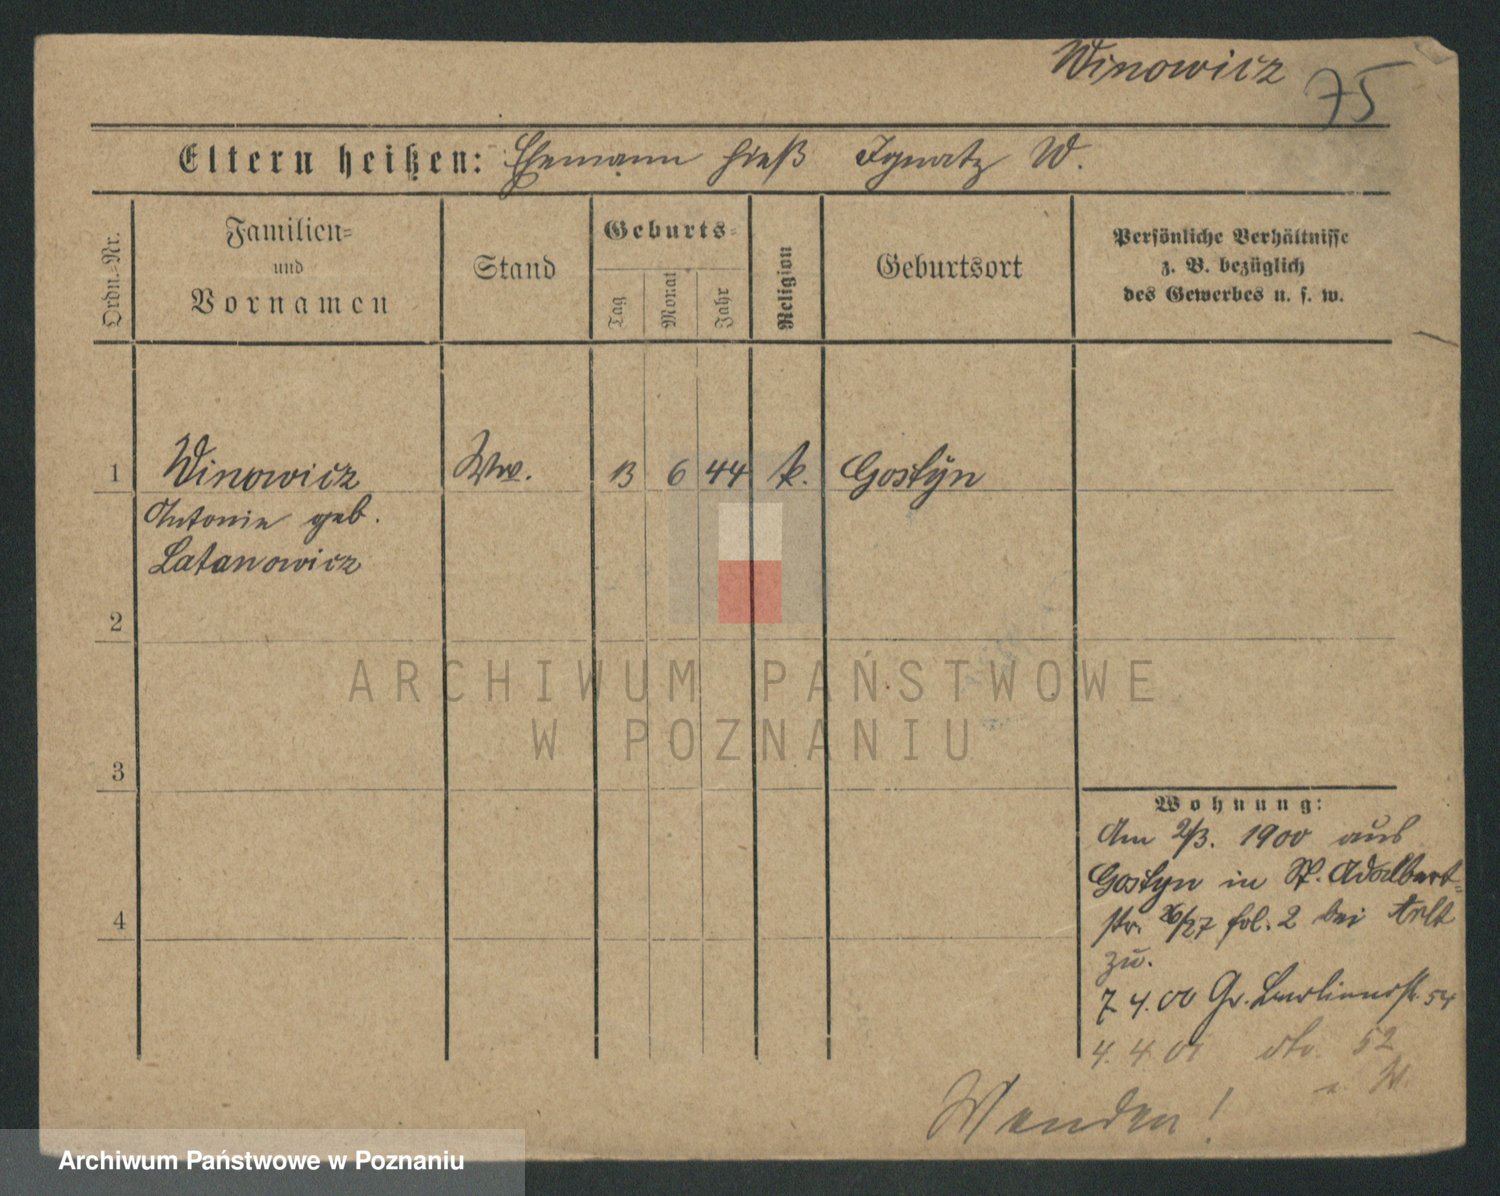 Winowicz
75
Eltern heißen: Ehemann hieß Ignatz W.
Ordn.-Nr.
Familien- und Vornamen
Stand
Geburts-
Tag
Monat
Jahr
Religion
Geburtsort
Persönliche Verhältnisse
z. B. bezüglich
des Gewerbes u. s. w.
1 Winowicz Ww. 13 6 44 k. Gostyn
Antonie geb.
Latanowicz
2
3
4
Wohnung:
Am 2/3. 1900 aus
Gostyn in St. Adalbert-
str. 26/27 fol. 2 bei
zu.
7. 4. 00 Gr. Berlinerstr. 54
4. 4. 01 dto. 52
Wenden!
ARCHIWUM PAŃSTWOWE
W POZNANIU
Archiwum Państwowe w Poznaniu